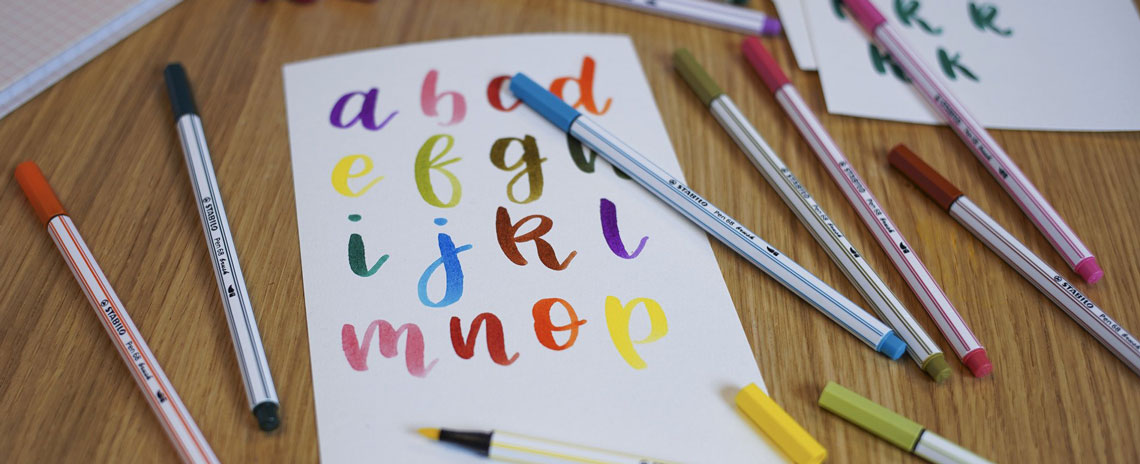 a b c d
e f g h
i j k l
m n o p
k k
k k
STABILO Pen 68 brush
STABILO Pen 68 brush
STABILO Pen 68 brush
STABILO Pen 68 brush
STABILO Pen 68 brush
STABILO Pen 68 brush